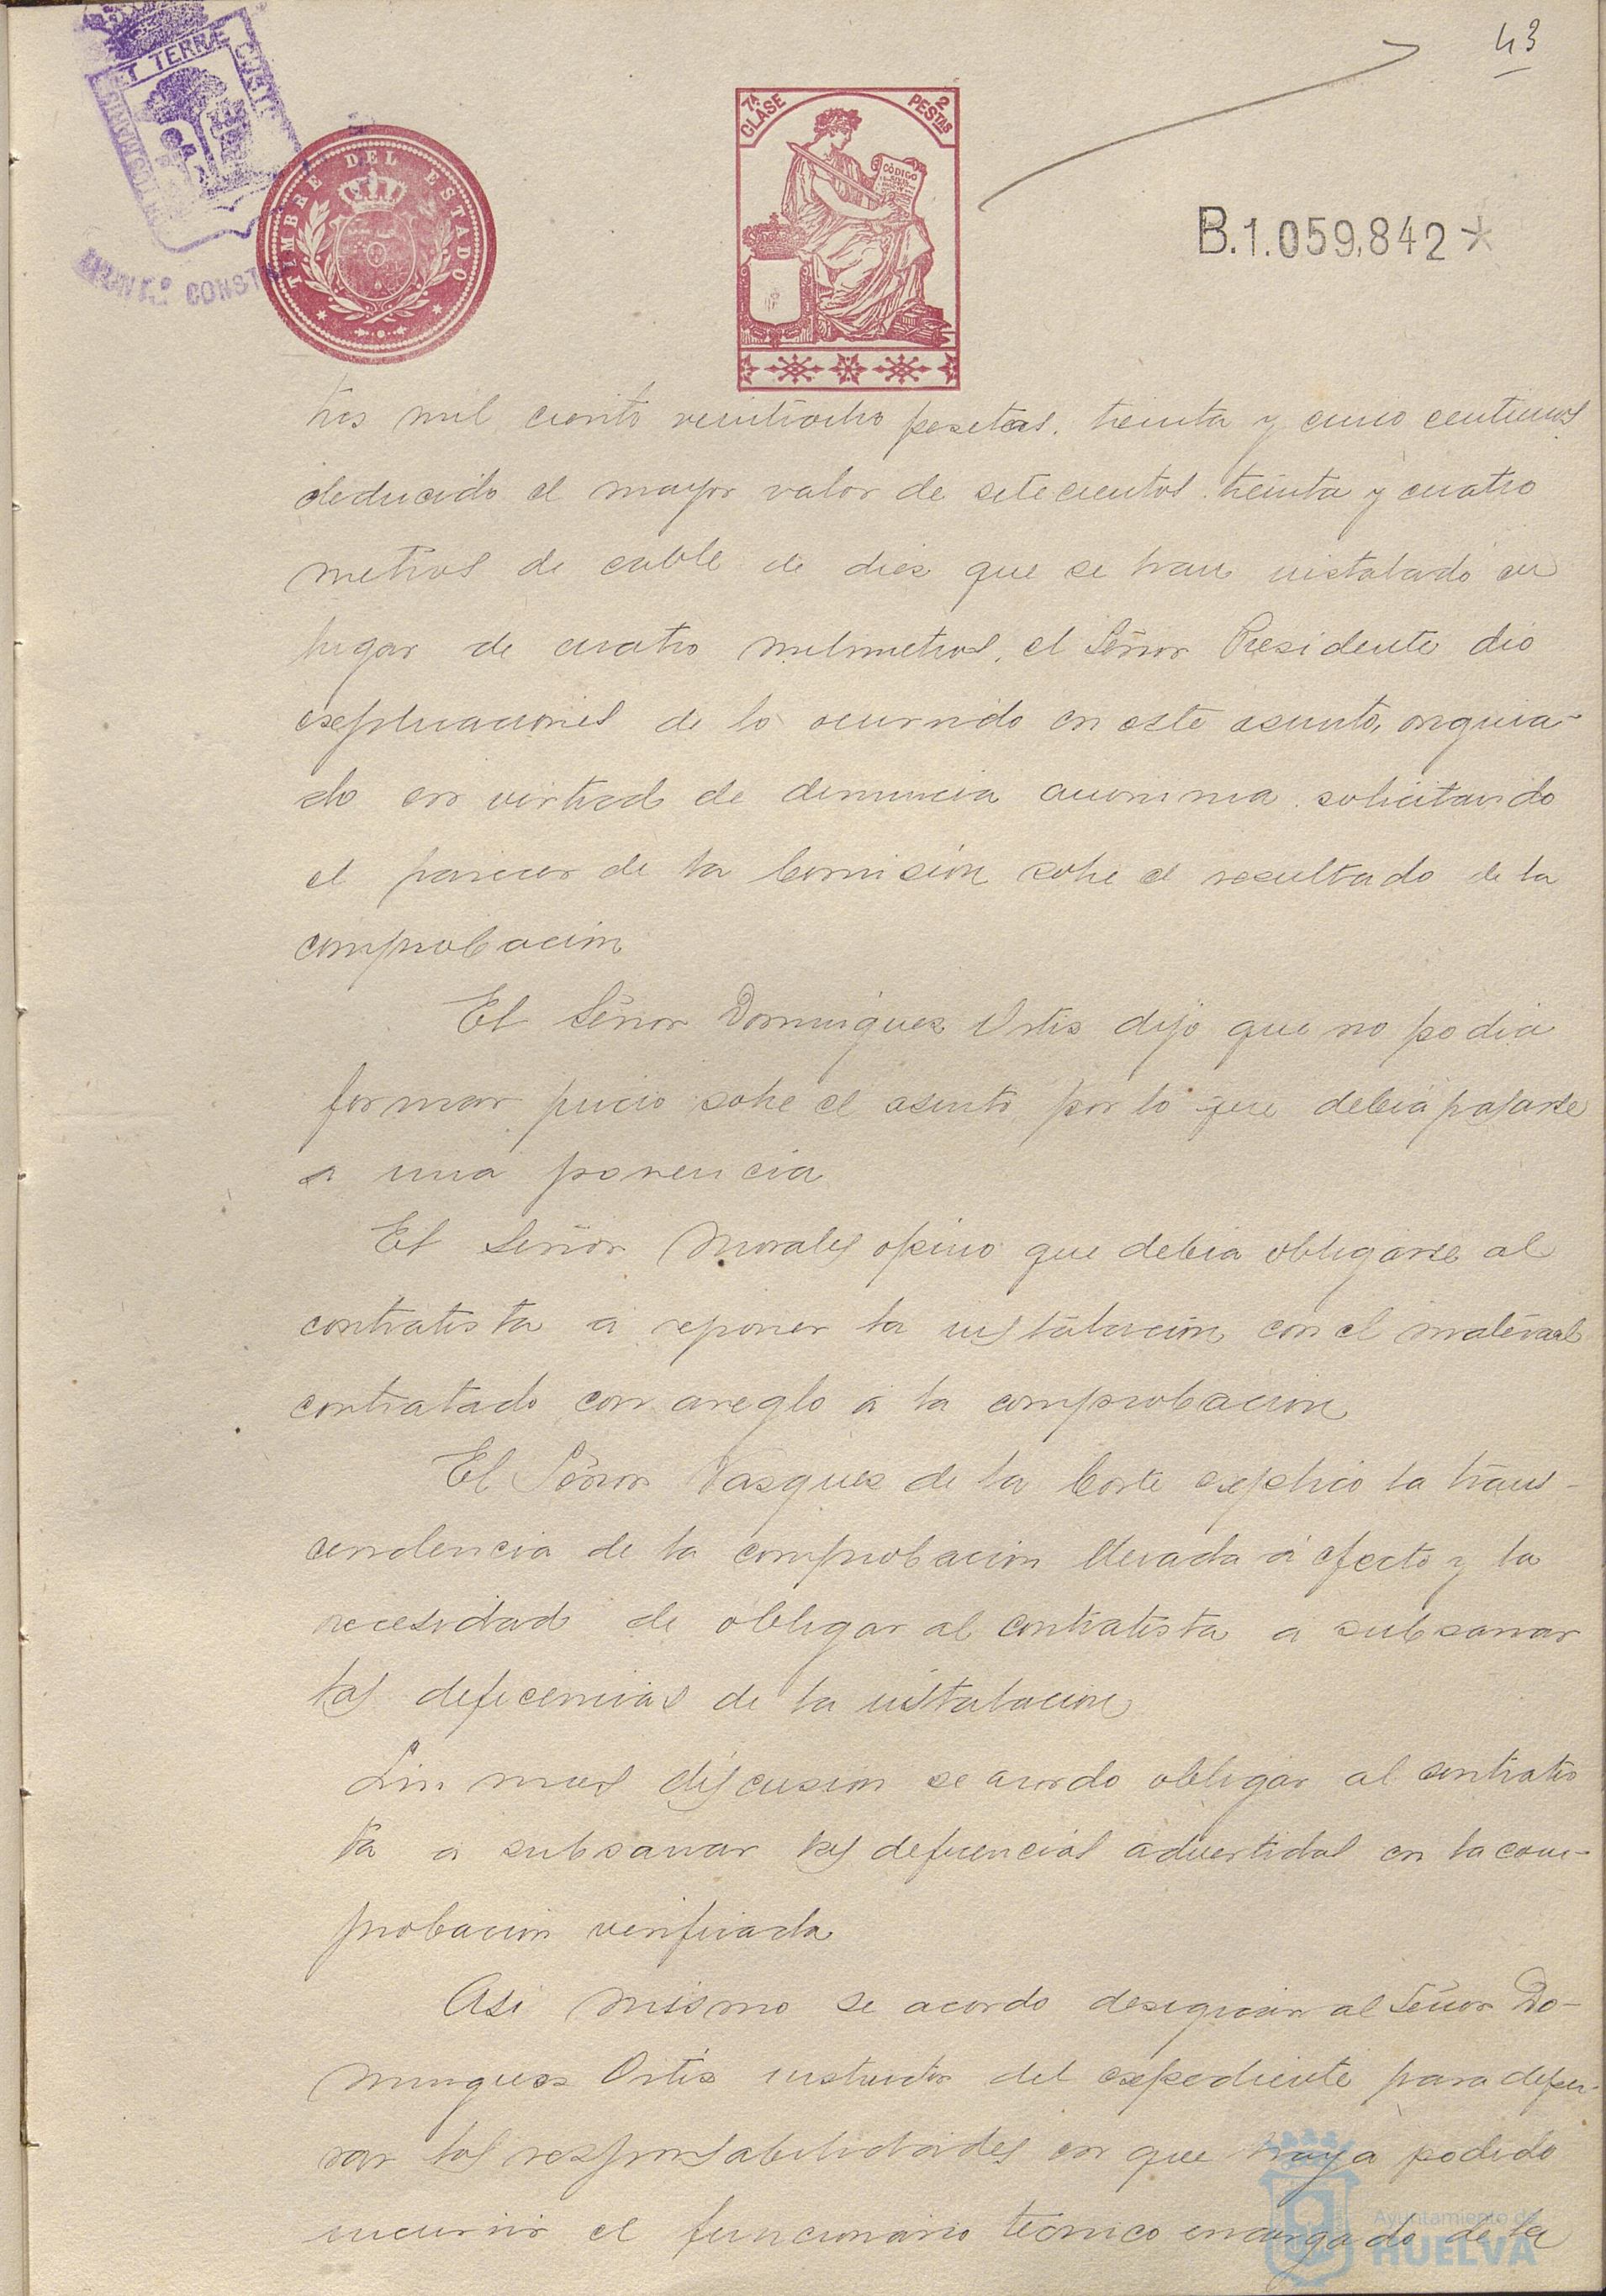 43
ET TERRÆ CUSTO
AYUNT.º CONST
TIMBRE DEL ESTADO
7ª CLASE
2 PESTAS
CODIGO
B.1.059,842*
tres mil ciento veintiocho pesetas, treinta y cinco centimos
deducido el mayor valor de setecientos treinta y cuatro
metros de cable de diez que se han instalado en
lugar de cuatro milimetros, el Señor Presidente dio
explicaciones de lo ocurrido en este asunto,
do en virtud de denuncia anonima solicitando
el parecer de la Comisión sobre el resultado de la
comprobacion
El Señor Dominguez Ortiz dijo que no podia
formar juicio sobre el asunto, por lo que debia pasarse
a una ponencia
El Señor Morales opino que debia obligarse al
contratista a reponer la instalación con el material
contratado con areglo á la comprobacion
El Señor Vazquez de la Corte explico la trans-
cendencia de la comprobacion llevada á efecto y la
necesidad de obligar al contratista a subsanar
las deficencias de la instalacion
Sin mas discusion se acordo obligar al contratis
ta a subsanar las deficiencias advertidas en la com-
probacion verificada
Asi mismo se acordo designar al Señor Do-
minguez Ortiz instructor del expediente para depu-
rar las responsabilidades en que haya podido
incurrir el funcionario tecnico encargado de la
Ayuntamiento de
HUELVA